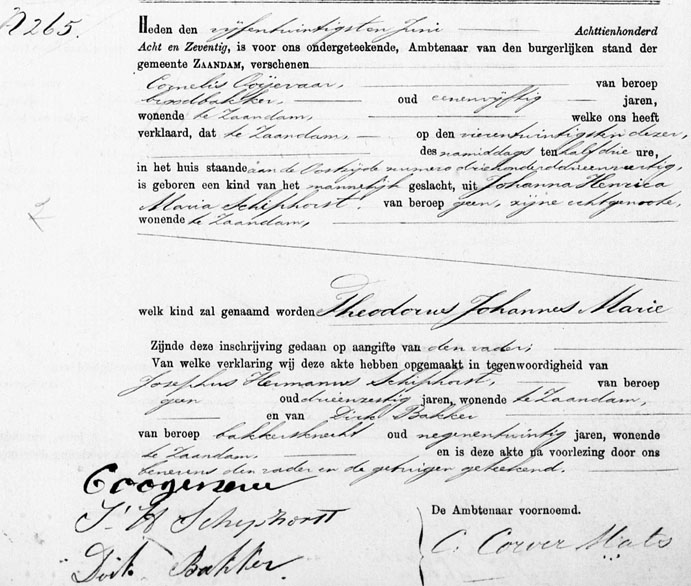 N 265.
Heden den vijfentwintigsten Juni Achttienhonderd
Acht en Zeventig, is voor ons ondergeteekende, Ambtenaar van den burgerlijken stand der
gemeente ZAANDAM, verschenen
Cornelis Gooijevaar, van beroep
broodbakker, oud eenenvijftig jaren,
wonende te Zaandam, welke ons heeft
verklaard, dat te Zaandam, op den vierentwintigsten dezer,
des namiddags ten half drie ure,
in het huis staande aan de Oostzijde numero driehonderddrieenveertig,
is geboren een kind van het mannelijk geslacht, uit Johanna Henrica
Maria Schiphorst, van beroep geen, zijne echtgenoote,
wonende te Zaandam,
welk kind zal genaamd worden Theodorus Johannes Marie
Zijnde deze inschrijving gedaan op aangifte van den vader;
Van welke verklaring wij deze akte hebben opgemaakt in tegenwoordigheid van
Josephus Hermanus Schiphorst, van beroep
geen oud drieenzestig jaren, wonende te Zaandam,
en van Dirk Bakker
van beroep bakkersknecht oud negenentwintig jaren, wonende
te Zaandam. en is deze akte na voorlezing door ons
benevens den vader en de getuigen geteekend.
J. H Schiphorst
De Ambtenaar voornoemd.
Dirk Bakker.
C. Corver Mats